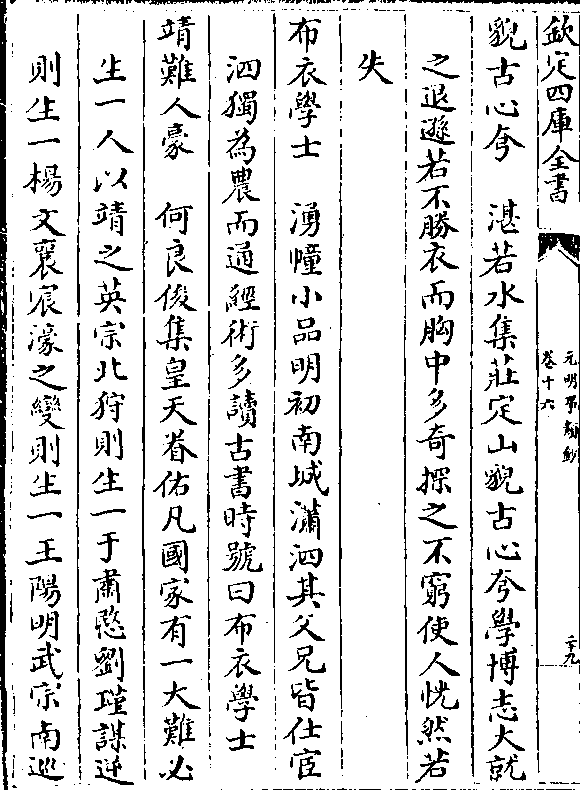 欽定四庫全書
元明事類鈔
卷十六
二十九
貌古心夸　湛若水集莊定山貌古心夸學博志大就
之退遜若不勝衣而胸中多奇探之不窮使人恍然若
失
布衣學士　湧幢小品明初南城瀟泗其父兄皆仕宦
泗獨為農而通經術多讀古書時號曰布衣學士
靖難人豪　何良俊集皇天眷佑凡國家有一大難必
生一人以靖之英宗北狩則生一于肅愍劉瑾謀逆
則生一楊文襄宸濠之變則生一王陽明武宗南巡